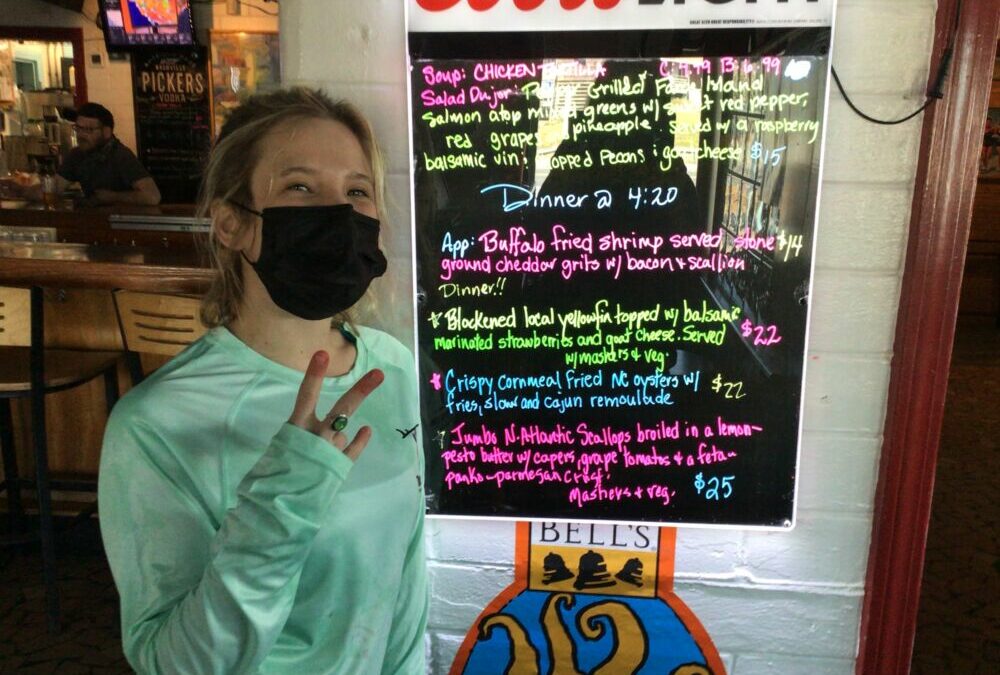 PICKERS
VODKA
Coors LIGHT
GREAT BEER GREAT RESPONSIBILITY
Soup: CHICKEN TORTILLA C: 4.99 B: 6.99
Salad DuJor: Pepper Grilled Faroe Island
Salmon atop mixed greens w/ sweet red pepper,
red grapes pineapple. Served w/ a raspberry
balsamic vin; chopped pecans & goat cheese $15
Dinner @ 4:20
App: Buffalo fried shrimp served, stone $14
ground cheddar grits w/ bacon + scallion
Dinner!!
Blackened local yellowfin topped w/ balsamic
marinated strawberries and goat cheese. Served $22
w/ mashers & veg.
Crispy Cornmeal Fried NC oysters w/ $22
fries, slaw and cajun remoulade
Jumbo N. Atlantic Scallops broiled in a lemon-
pesto butter w/ capers, grape tomatos & a feta-
panko-parmesan crust.
Mashers & veg. $25
BELL'S